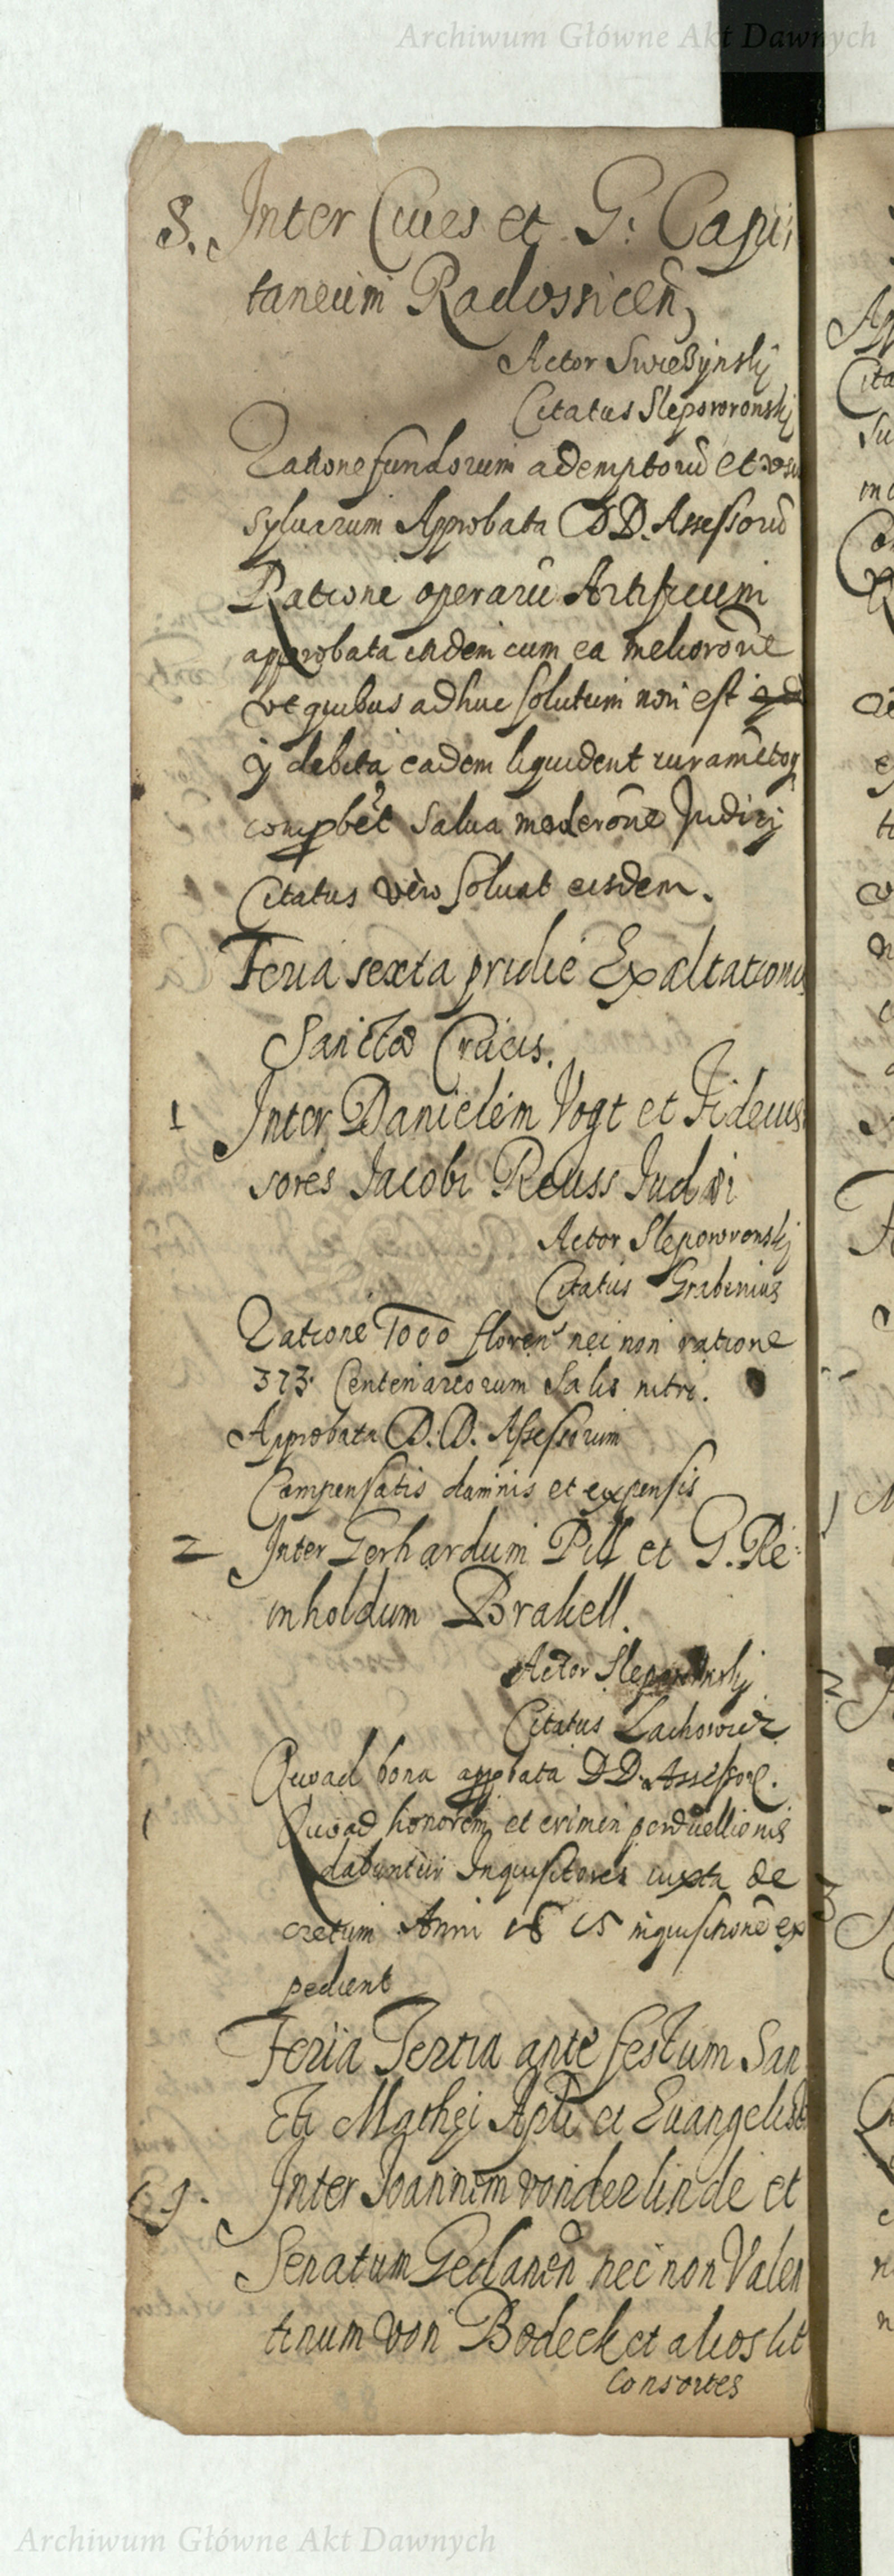 Archiwum Główne Akt Dawnych
8. Inter Cives et G: Capi
taneum Radossicen̄,
Actor Swiezÿnskj
Citatus Slepowronskj
Ratione fundorum ademptorū et usu
sylvarum Approbata DD. Assessorū
Ratione operarū Artificum
approbata eadem cum ea meliorōne
ut quibus adhuc solutum non est
ij debita eadem liquident
salva moderōne Judicij
Citatus vero solvat eisdem.
Feria sexta pridie Exaltationis
Sanctæ Crucis.
1 Inter Danielem Vogt et Fideius
sores Jacobi Reuss Judæi
Actor Slepowronskj
Citatus Grabenius
Ratione 7000 floren nec non ratione
373. Centenareorum Salis nitri.
Approbata D.D. Assessorum
Compensatis damnis et expensis
2 Inter Gerhardum Pill et G. Re:
inholdum Brakell.
Actor Slepowronskj
Citatus Lachowicz
Quoad bona appbata DD. Assessor.
Quoad honorem et crimen perduellionis
dabuntur Inquisitores iuxta de
cretum Anni 1615 inquisitionē ex
pedient
Feria Tertia ante festum San
cti Mathei Apli et Evangelist
1. Inter Joannem vonderlinde et
Senatum Gedanen̄ nec non Valen
tinum von Bodeck et alios lit
consortes
Archiwum Główne Akt Dawnych